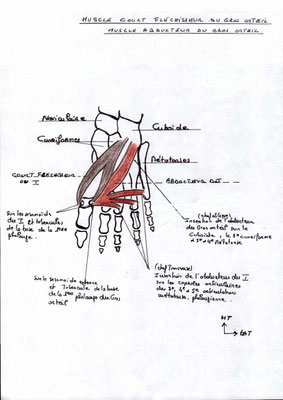 MUSCLE COURT FLECHISSEUR DU GROS ORTEIL
MUSCLE ABDUCTEUR DU GROS ORTEIL
Naviculaire
Cuboïde
Cuneiformes
Metatarses
COURT FLECHISSEUR
DU I
ABDUCTEUR DU I
Sur les sesamoïdes
du I et tubercules
de la base de la 1ère
phalange.
(chef oblique)
Insertion de l'abducteur
du Gros orteil sur le
Cuboïde, le 3e cuneiforme
et 3e 4e Metatarse
Sur le sesamoïde externe
et Tubercule de la base
de la 1ère phalange du Gros
orteil
(chef Transverse)
Insertion de l'abducteur du I
sur les capsules articulaires
des 3e, 4e et 5e articulations
metatarso. phalangienne.
HT